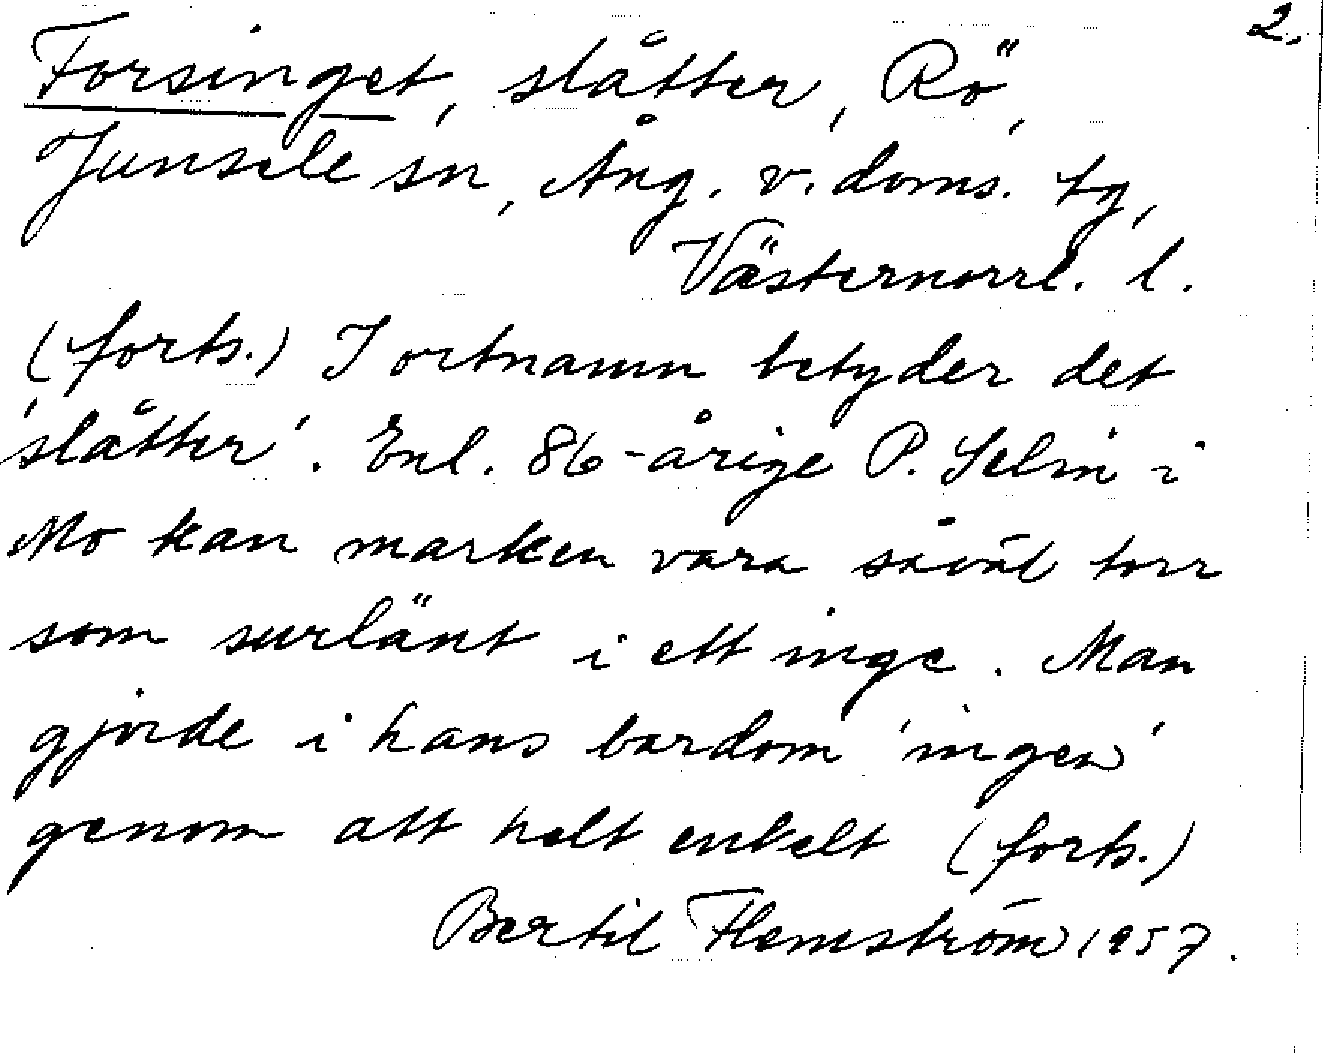 2.
Forsinget, slåtter, Rö,
Junsele sn, Ång. v. doms. tg,
Västernorrl. l.
(forts.) I ortnamn betyder det
'slåtter'. Enl. 86-årige P. Selin i
Mo kan marken vara såväl torr
som surlänt i ett inge. Man
gjorde i hans bardom 'ingen'
genom att helt enkelt (forts.)
Bertil Flemström 1957.